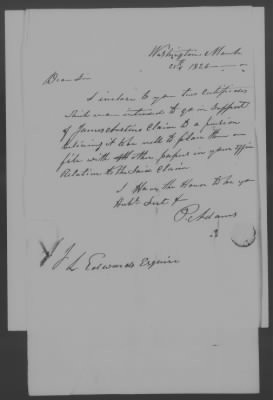 Washington March
25th 1826
Dear Sir
I inclose to you two certificates
which ware intended to go in support
of James Austins Claim to a pension
beliving it be well to place them on
file with the other papers in your office
Relation to the Said Claim
I Have the Honor to be your
Hubl Sert &
P. Adams
J L Edwards Esquire